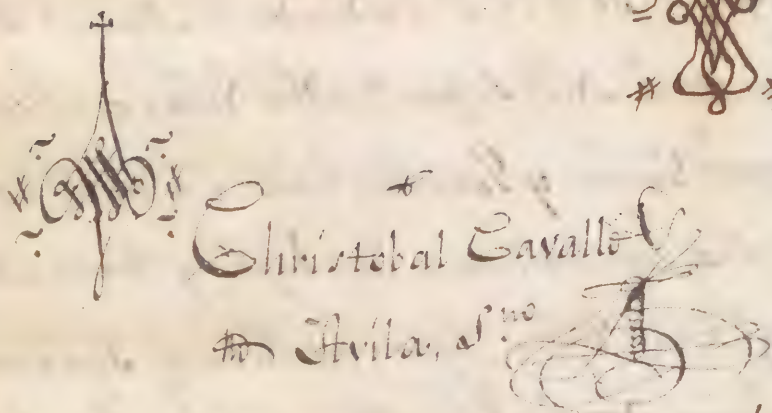 Christobal Cavallo
de Avila, s.no